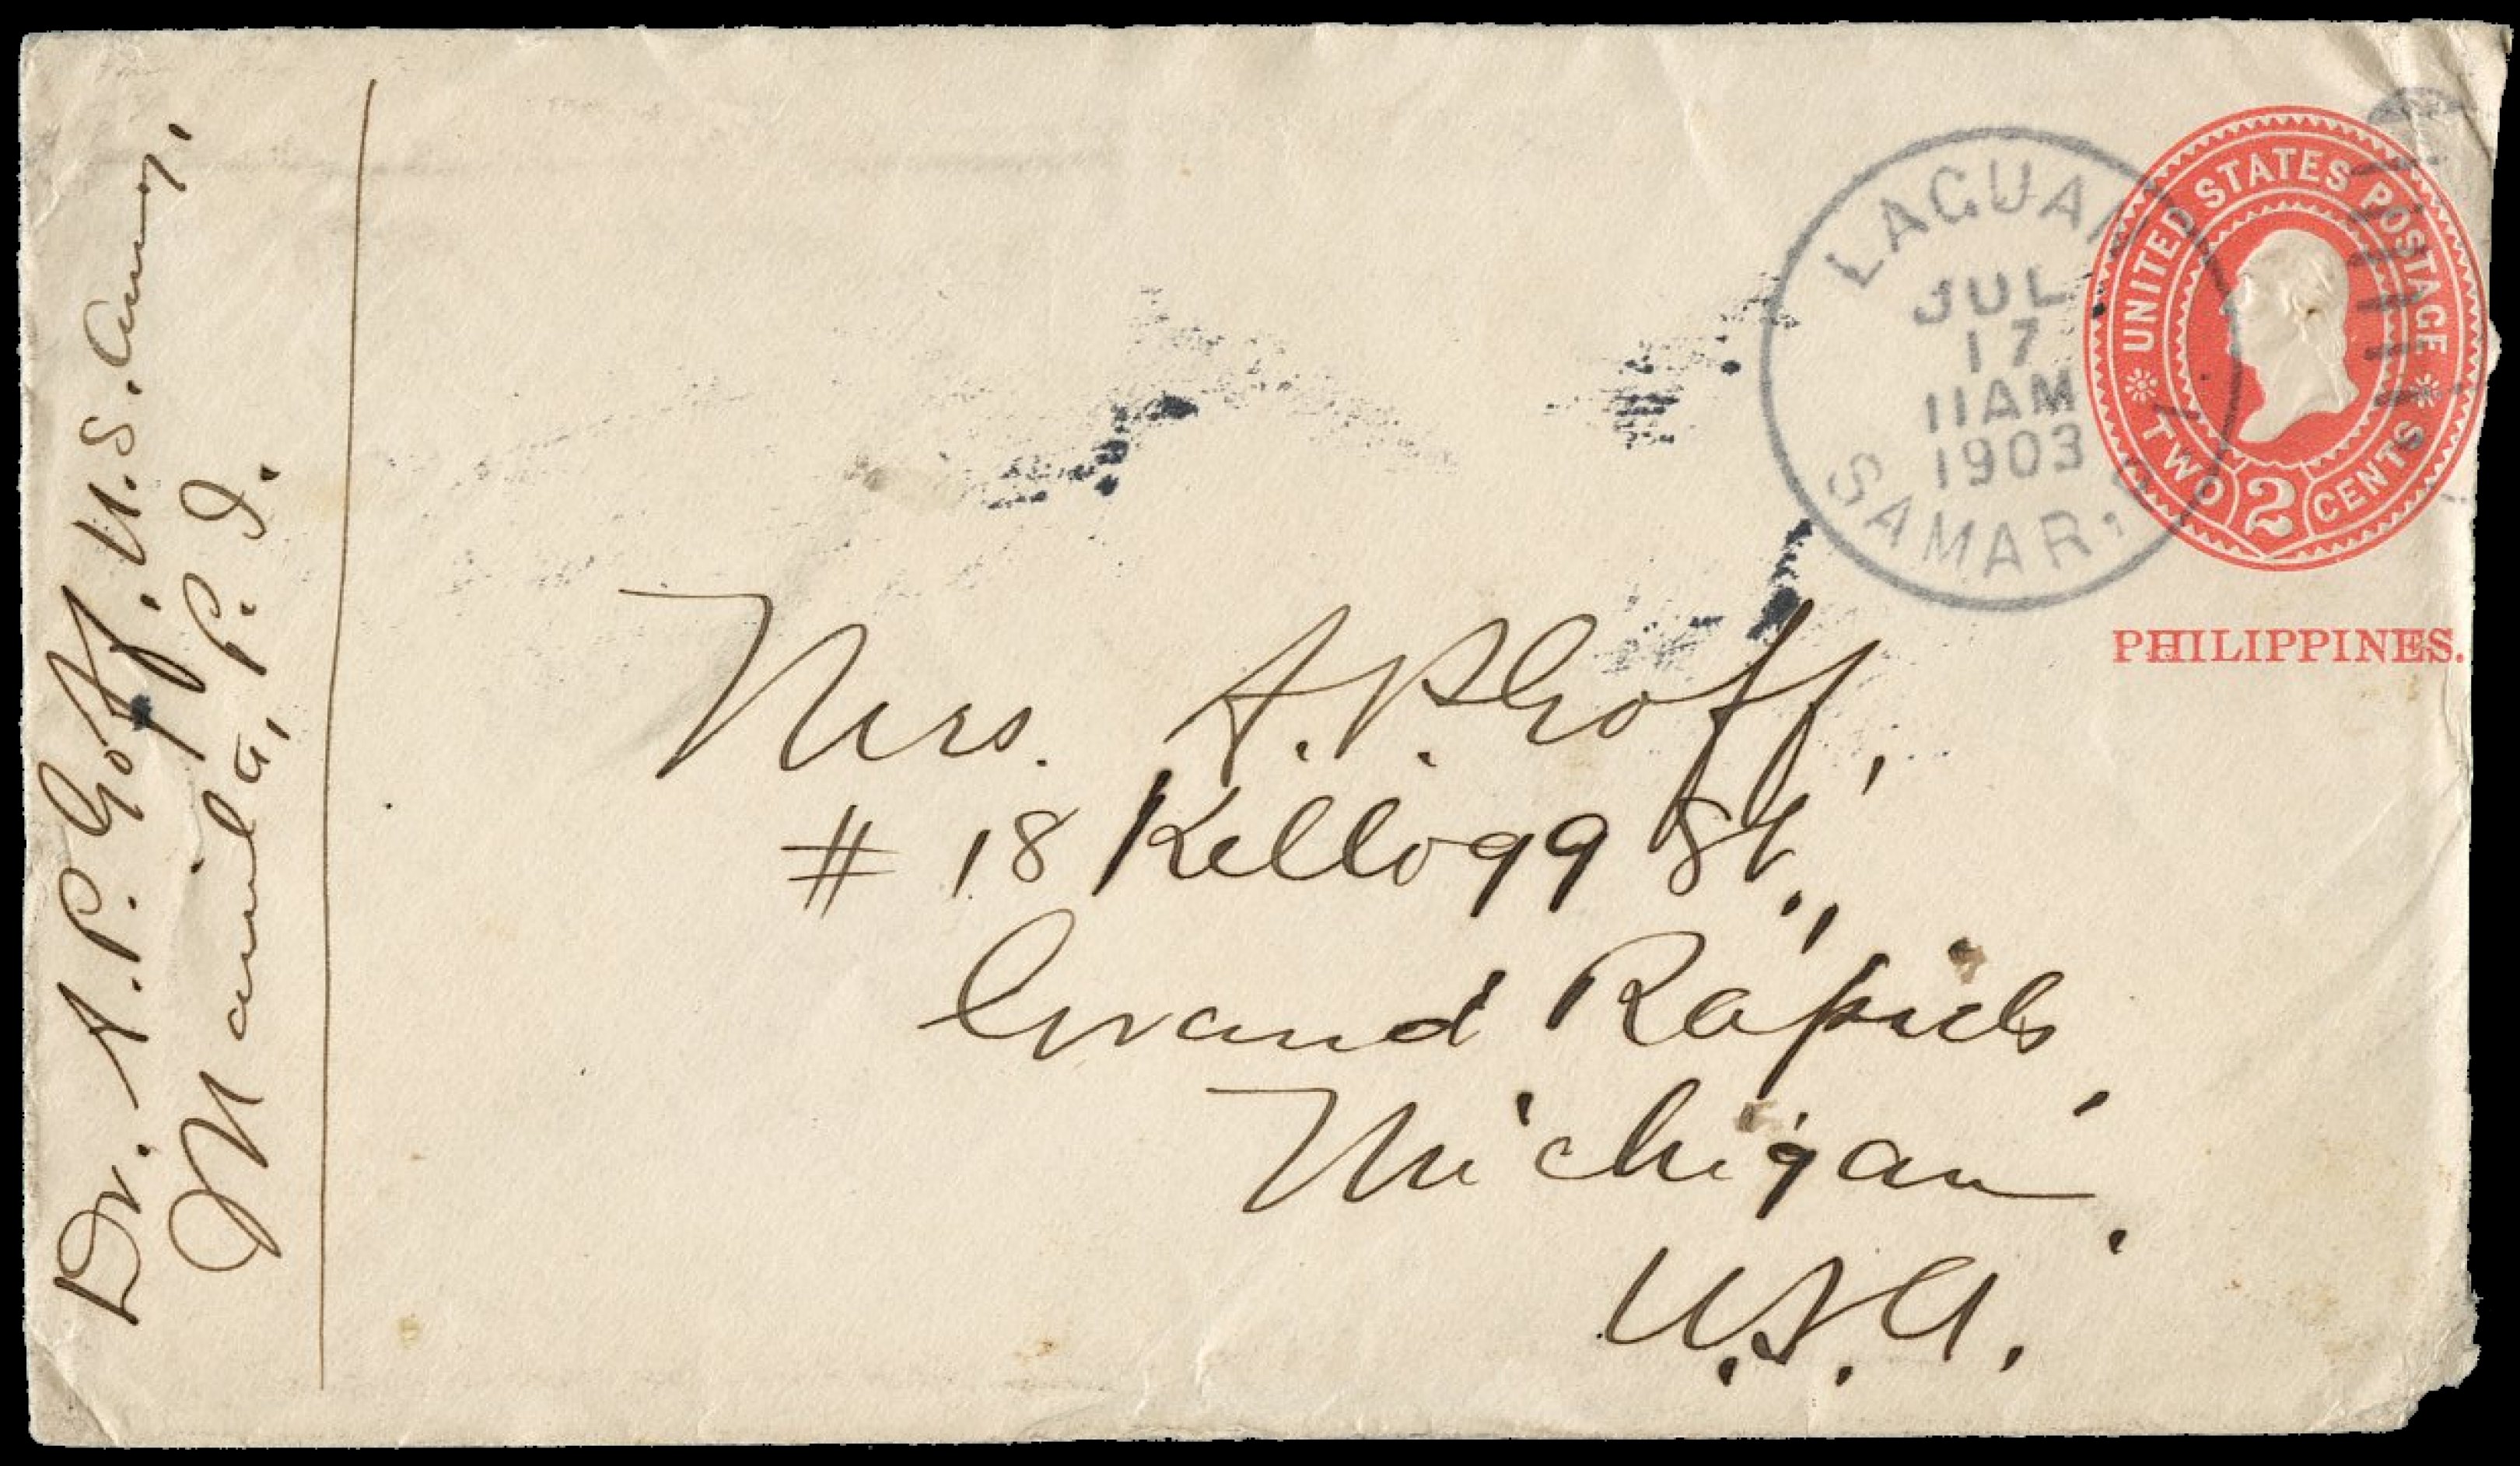 Dr. A. P. Goff, U.S. Army,
Manila, P. I.
LAGUAN
JUL
17
11AM
1903
SAMAR,
UNITED STATES POSTAGE
TWO 2 CENTS
PHILIPPINES.
Mrs. A. P. Goff,
# 18 Kellogg St.,
Grand Rapids,
Michigan.
U.S.A.